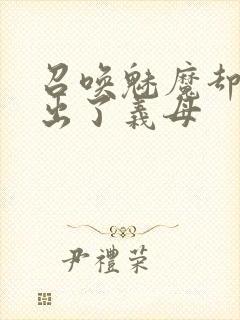 召喚魅魔却
出了義母
尹禮荣